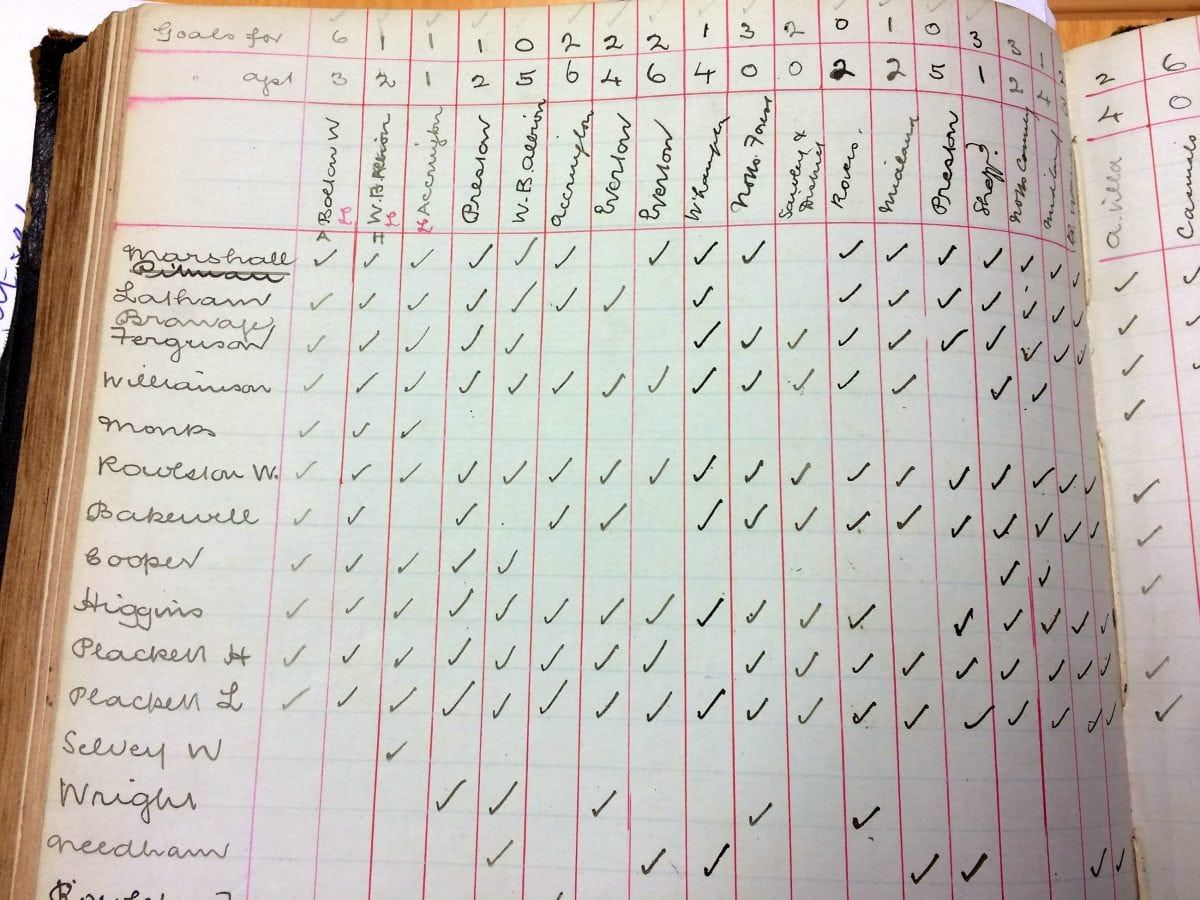 Goals for 6 1 1 1 0 2 2 2 1 3 2 0 1 0 3 3 1 2 6
" agst 3 2 1 2 5 6 4 6 4 0 0 2 2 5 1 2 4 4 0
Bolton W
W.B. Albion
Accrington
Preston
W.B. Albion
Accrington
Everton
Everton
W'hampton
Notts Forest
Sawley & District
Rovers
Midland
Preston
Sheff?
Notts County
Midland
A Villa
Marshall ✓ ✓ ✓ ✓ ✓ ✓ ✓ ✓ ✓ ✓ ✓ ✓ ✓ ✓ ✓ ✓ ✓ ✓
Pitman
Latham ✓ ✓ ✓ ✓ ✓ ✓ ✓ ✓ ✓ ✓ ✓ ✓ ✓ ✓ ✓ ✓
Ferguson ✓ ✓ ✓ ✓ ✓ ✓ ✓ ✓ ✓ ✓ ✓ ✓ ✓ ✓ ✓ ✓
Williamson ✓ ✓ ✓ ✓ ✓ ✓ ✓ ✓ ✓ ✓ ✓ ✓ ✓ ✓ ✓ ✓
Monks ✓ ✓ ✓
Rowlston W. ✓ ✓ ✓ ✓ ✓ ✓ ✓ ✓ ✓ ✓ ✓ ✓ ✓ ✓ ✓ ✓ ✓ ✓ ✓
Bakewell ✓ ✓ ✓ ✓ ✓ ✓ ✓ ✓ ✓ ✓ ✓ ✓ ✓ ✓ ✓ ✓
Cooper ✓ ✓ ✓ ✓ ✓ ✓ ✓ ✓
Higgins ✓ ✓ ✓ ✓ ✓ ✓ ✓ ✓ ✓ ✓ ✓ ✓ ✓ ✓ ✓ ✓ ✓
Plackett H ✓ ✓ ✓ ✓ ✓ ✓ ✓ ✓ ✓ ✓ ✓ ✓ ✓ ✓ ✓ ✓ ✓ ✓
Plackett L ✓ ✓ ✓ ✓ ✓ ✓ ✓ ✓ ✓ ✓ ✓ ✓ ✓ ✓ ✓ ✓ ✓ ✓ ✓
Selvey W ✓
Wright ✓ ✓ ✓ ✓ ✓
Needham ✓ ✓ ✓ ✓ ✓ ✓ ✓